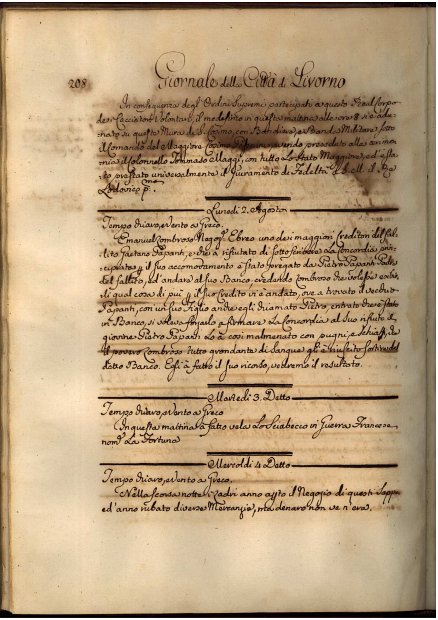 208 Giornale della Città di Livorno
In consequenza degl' Ordini Supremi partecipati a questo Real Corpo
de' Cacciatori Volontarj, il medesimo in questa mattina alle ore 8 si è adu-
nato su queste Mura di S. Cosimo, con Bandiera, e Banda Militare sotto
il Comando del Maggiore Cosimo avendo preceduto alla cerimo-
nia il Colonnello Tommaso Maggi, con tutto lo Stato Maggiore, ed è sta-
to prestato universalmente il Giuramento di Fedeltà a S. M. il Re
Lodovico pmo
Lunedì 2. Agosto
Tempo chiaro, e Vento a Greco.
Emanuel Combroso Negoz.e Ebreo uno de' maggiori Creditori del fal-
lito Gaetano Papanti, e che à rifiutato di sottoscrivere la Concordia
e il suo accomodamento è stato pregato da Pietro Papanti Padre
del fallito, ad andare al suo Banco, credendo Combroso che volesse
di qual cosa di più il suo Credito vi è andato, ove à trovato il vecchio
Papanti, con un suo figlio anche egli chiamato Pietro, entrato che è stato
in Banco, si voleva forzarlo a firmare la Concordia al suo rifiuto il
giovine Pietro Papanti lo à così malmenato con pugni, e schiaffi, che
il povero Combroso tutto grondante di Sangue gl' è riuscito sortire dal
detto Banco. Esso à fatto il suo ricorso, vedremo il resultato.
Martedì 3. Detto
Tempo chiaro, e Vento a Greco
In questa mattina à fatto vela lo Sciabecco in Guerra Francese
nom.o La Fortuna
Mercoldì 4 Detto
Tempo chiaro, e Vento a Greco.
Nella scorsa notte i Ladri anno apto il Negozio di questi
ed' anno rubato diverse Mercanzie, ma denaro non ve n'era.